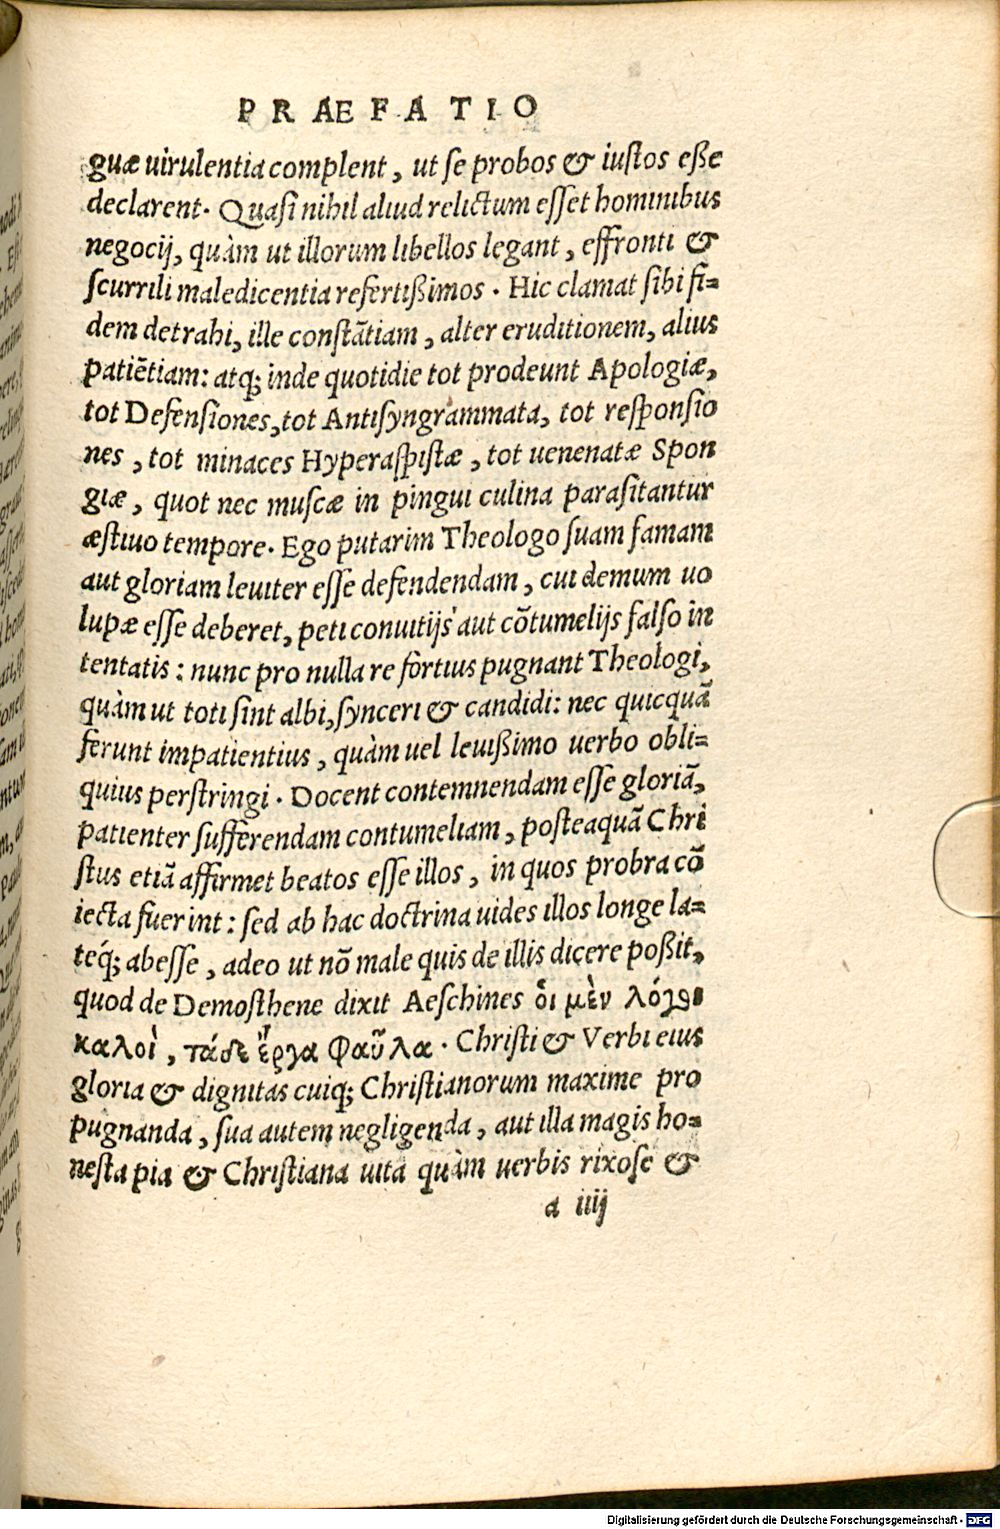 PRAEFATIO
guæ uirulentia complent, ut se probos & iustos eße
declarent. Quasi nihil aliud relictum esset hominibus
negocij, quàm ut illorum libellos legant, effronti &
scurrili maledicentia refertißimos. Hic clamat sibi fi=
dem detrahi, ille constātiam, alter eruditionem, alius
patiētiam: atq; inde quotidie tot prodeunt Apologiæ,
tot Defensiones, tot Antisyngrammata, tot responsio
nes, tot minaces Hyperaspistæ, tot uenenatæ Spon
giæ, quot nec muscæ in pingui culina parasitantur
æstiuo tempore. Ego putarim Theologo suam famam
aut gloriam leuiter esse defendendam, cui demum uo
lupæ esse deberet, peti conuitijs aut cōtumelijs falso in
tentatis: nunc pro nulla re fortius pugnant Theologi,
quàm ut toti sint albi, synceri & candidi: nec quicquā
ferunt impatientius, quàm uel leuißimo uerbo obli=
quius perstringi. Docent contemnendam esse gloriā,
patienter sufferendam contumeliam, posteaquā Chri
stus etiā affirmet beatos esse illos, in quos probra cō
iecta fuerint: sed ab hac doctrina uides illos longe la=
teq́; abesse, adeo ut nō male quis de illis dicere poßit,
quod de Demosthene dixit Aeschines ὁι μὲν λόγοι
καλοὶ, τάδε ἔργα φαῦλα. Christi & Verbi eius
gloria & dignitas cuiq; Christianorum maxime pro
pugnanda, sua autem negligenda, aut illa magis ho=
nesta pia & Christiana uita quàm uerbis rixose &
a iiij
Digitalisierung gefördert durch die Deutsche Forschungsgemeinschaft - DFG